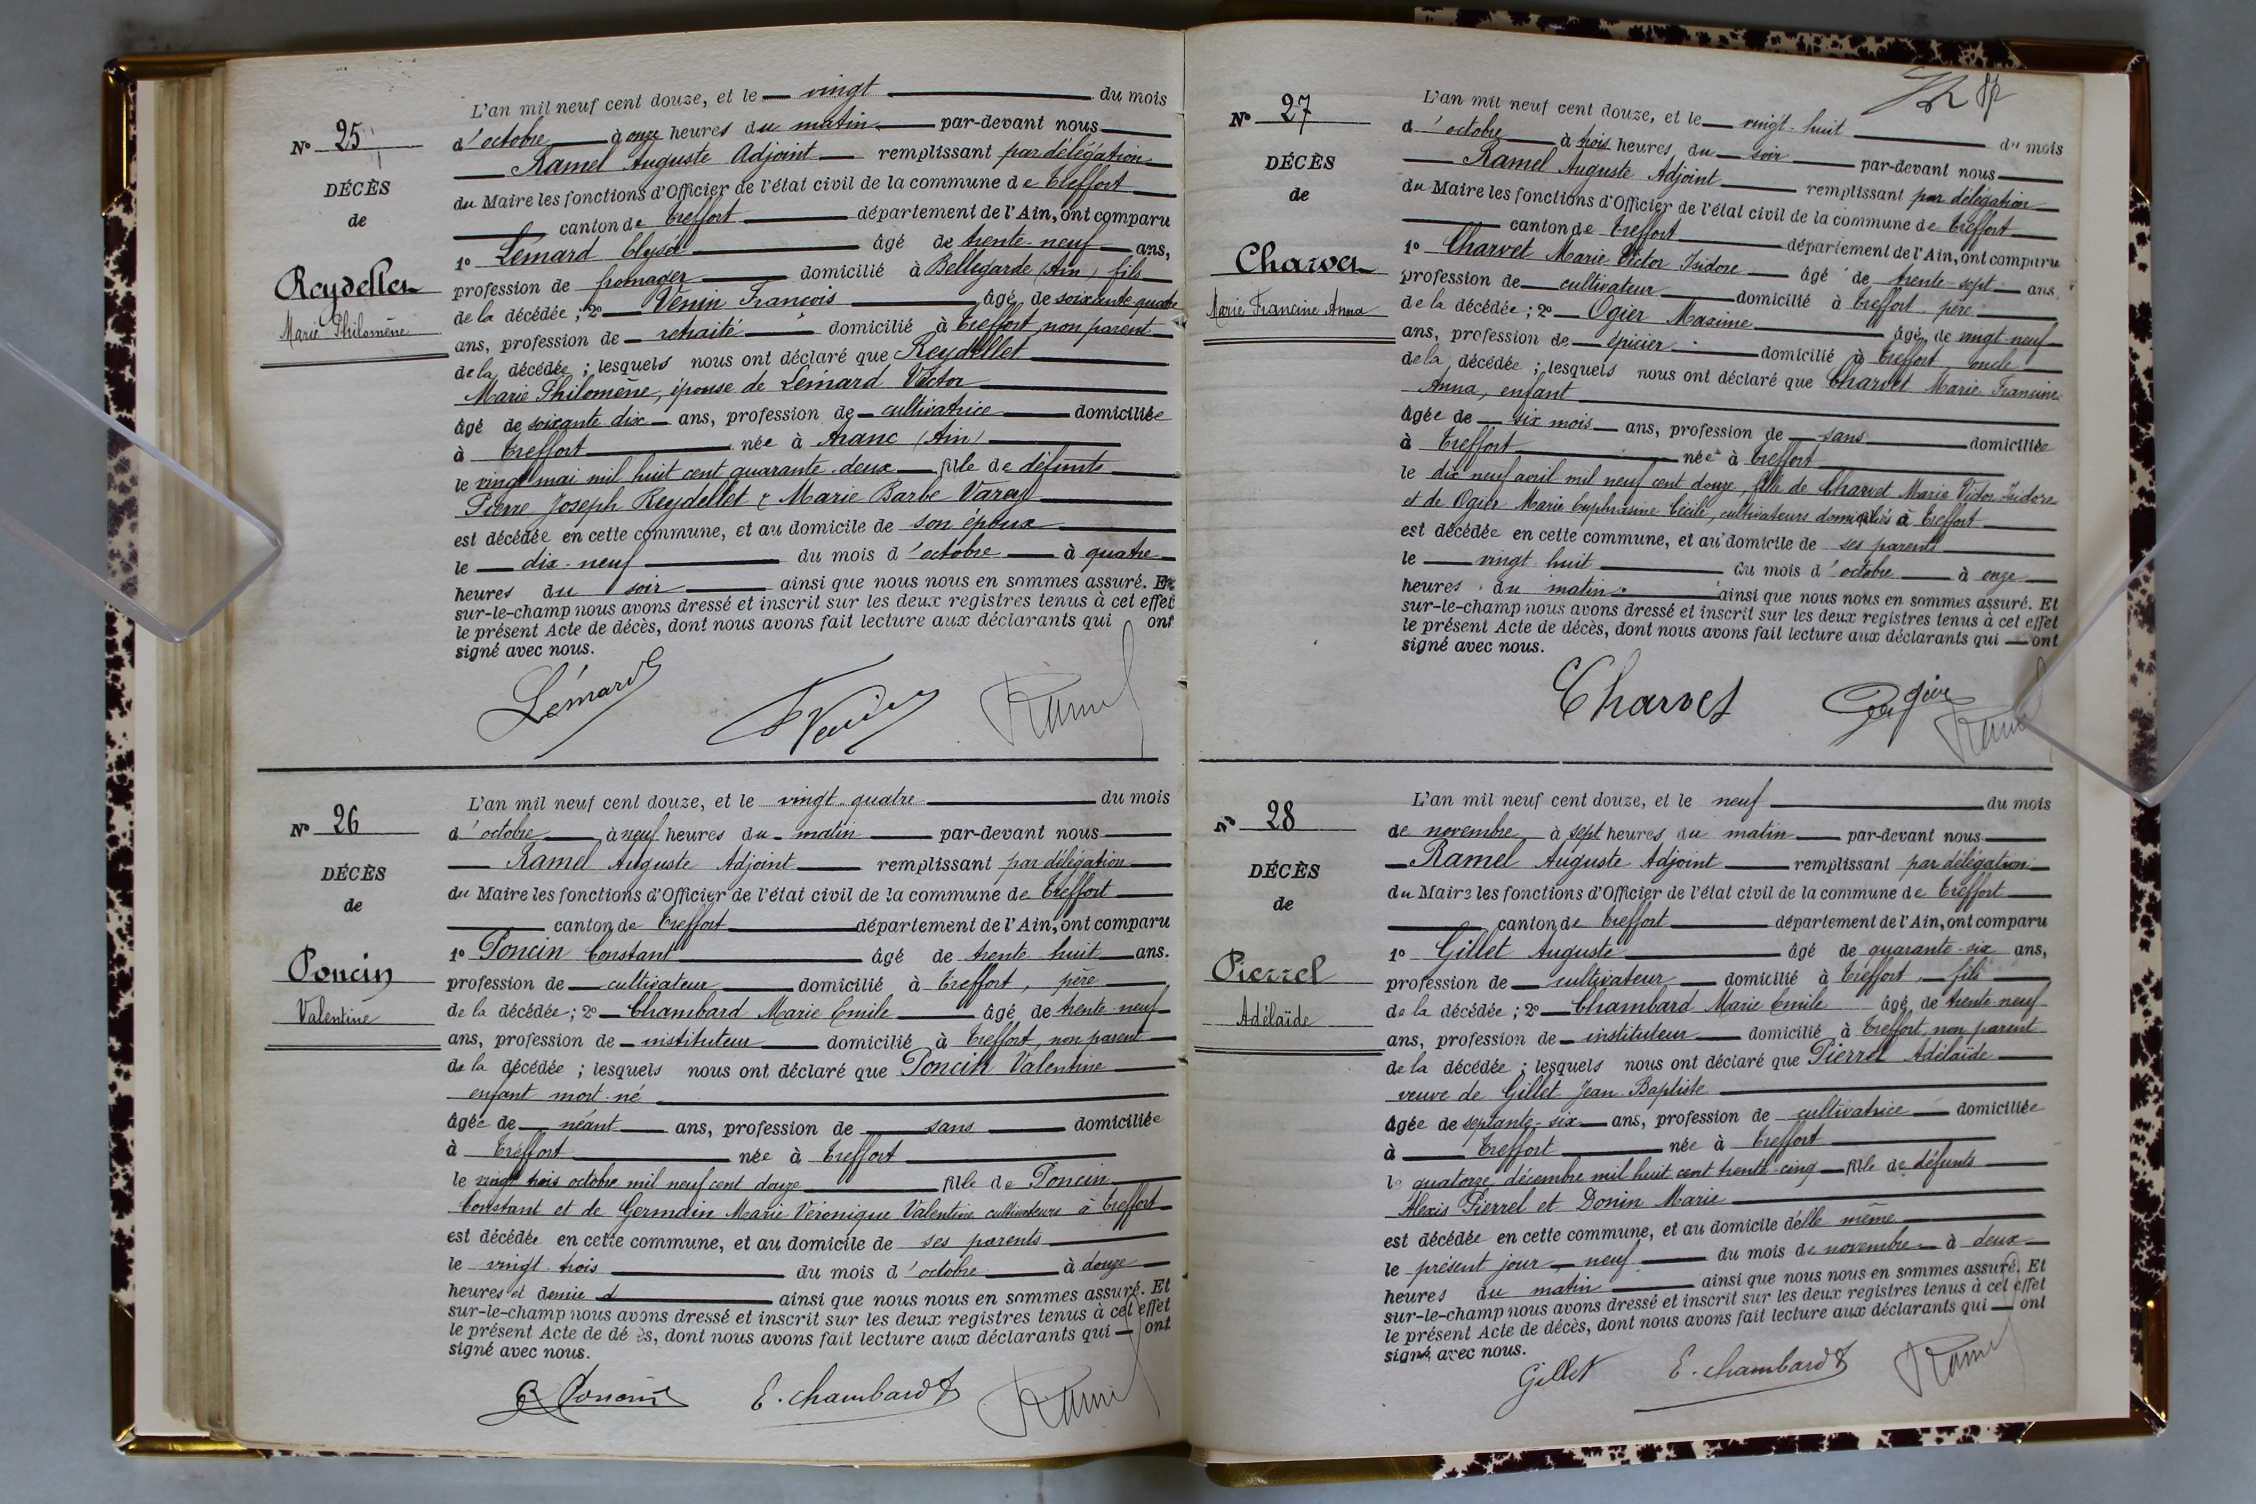 N° 25
DÉCÈS
de
Reydellet
Marie Philomène
L'an mil neuf cent douze, et le vingt du mois
d'octobre à onze heures du matin par-devant nous
Ramel Auguste Adjoint remplissant par délégation
du Maire les fonctions d'Officier de l'état civil de la commune de Treffort
canton de Treffort département de l'Ain, ont comparu
1° Lémard Elysée âgé de trente-neuf ans,
profession de fromager domicilié à Bellegarde (Ain) fils
de la décédée; 2° Venin François âgé de soixante quatre
ans, profession de retraité domicilié à Treffort, non parent
de la décédée; lesquels nous ont déclaré que Reydellet
Marie Philomène, épouse de Lémard Victor
âgé de soixante dix ans, profession de cultivatrice domiciliée
à Treffort née à Aranc (Ain)
le vingt mai mil huit cent quarante-deux fille de défunts
Pierre Joseph Reydellet & Marie Barbe Varay
est décédée en cette commune, et au domicile de son époux
le dix-neuf du mois d'octobre à quatre
heures du soir ainsi que nous nous en sommes assuré. Et
sur-le-champ nous avons dressé et inscrit sur les deux registres tenus à cet effet
le présent Acte de décès, dont nous avons fait lecture aux déclarants qui ont
signé avec nous.
Lémard F Venin Ramel
N° 26
DÉCÈS
de
Poncin
Valentine
L'an mil neuf cent douze, et le vingt-quatre du mois
d'octobre à neuf heures du matin par-devant nous
Ramel Auguste Adjoint remplissant par délégation
du Maire les fonctions d'Officier de l'état civil de la commune de Treffort
canton de Treffort département de l'Ain, ont comparu
1° Poncin Constant âgé de trente huit ans.
profession de cultivateur domicilié à Treffort, père
de la décédée; 2° Chambard Marie Emile âgé de trente-neuf
ans, profession de instituteur domicilié à Treffort, non parent
de la décédée; lesquels nous ont déclaré que Poncin Valentine
enfant mort-né
âgée de néant ans, profession de sans domiciliée
à Treffort née à Treffort
le vingt trois octobre mil neuf cent douze fille de Poncin
Constant et de Germain Marie Véronique Valentine cultivateurs à Treffort
est décédée en cette commune, et au domicile de ses parents
le vingt-trois du mois d'octobre à douze
heures et demie d ainsi que nous nous en sommes assuré. Et
sur-le-champ nous avons dressé et inscrit sur les deux registres tenus à cet effet
le présent Acte de dé ès, dont nous avons fait lecture aux déclarants qui ont
signé avec nous.
C Poncin E. Chambard Ramel
N° 27
DÉCÈS
de
Charvet
Marie Francine Anna
L'an mil neuf cent douze, et le vingt-huit du mois
d'octobre à trois heures du soir par-devant nous
Ramel Auguste Adjoint remplissant par délégation
du Maire les fonctions d'Officier de l'état civil de la commune de Treffort
canton de Treffort département de l'Ain, ont comparu
1° Charvet Marie Victor Isidore âgé de trente-sept ans,
profession de cultivateur domicilié à Treffort, père
de la décédée; 2° Ogier Maxime âgé de vingt-neuf
ans, profession de épicier domicilié à Treffort, oncle
de la décédée; lesquels nous ont déclaré que Charvet Marie Francine
Anna, enfant
âgée de six mois ans, profession de sans domiciliée
à Treffort née à Treffort
le dix neuf avril mil neuf cent douze, fille de Charvet Marie Victor Isidore
et de Ogier Marie Euphrasine Cécile, cultivateurs domiciliés à Treffort
est décédée en cette commune, et au domicile de ses parents
le vingt huit du mois d'octobre à onze
heures du matin ainsi que nous nous en sommes assuré. Et
sur-le-champ nous avons dressé et inscrit sur les deux registres tenus à cet effet
le présent Acte de décès, dont nous avons fait lecture aux déclarants qui ont
signé avec nous.
Charvet Ogier Ramel
N° 28
DÉCÈS
de
Pierrel
Adélaïde
L'an mil neuf cent douze, et le neuf du mois
de novembre à sept heures du matin par-devant nous
Ramel Auguste Adjoint remplissant par délégation
du Maire les fonctions d'Officier de l'état civil de la commune de Treffort
canton de Treffort département de l'Ain, ont comparu
1° Gillet Auguste âgé de quarante-six ans,
profession de cultivateur domicilié à Treffort, fils
de la décédée; 2° Chambard Marie Emile âgé de trente-neuf
ans, profession de instituteur domicilié à Treffort, non parent
de la décédée; lesquels nous ont déclaré que Pierrel Adélaïde
veuve de Gillet Jean Baptiste
âgée de septante-six ans, profession de cultivatrice domiciliée
à Treffort née à Treffort
le quatorze décembre mil huit cent trente-cinq fille de défunts
Alexis Pierrel et Donin Marie
est décédée en cette commune, et au domicile d'elle même
le présent jour, neuf du mois de novembre à deux
heures du matin ainsi que nous nous en sommes assuré. Et
sur-le-champ nous avons dressé et inscrit sur les deux registres tenus à cet effet
le présent Acte de décès, dont nous avons fait lecture aux déclarants qui ont
signé avec nous.
Gillet E. Chambard Ramel